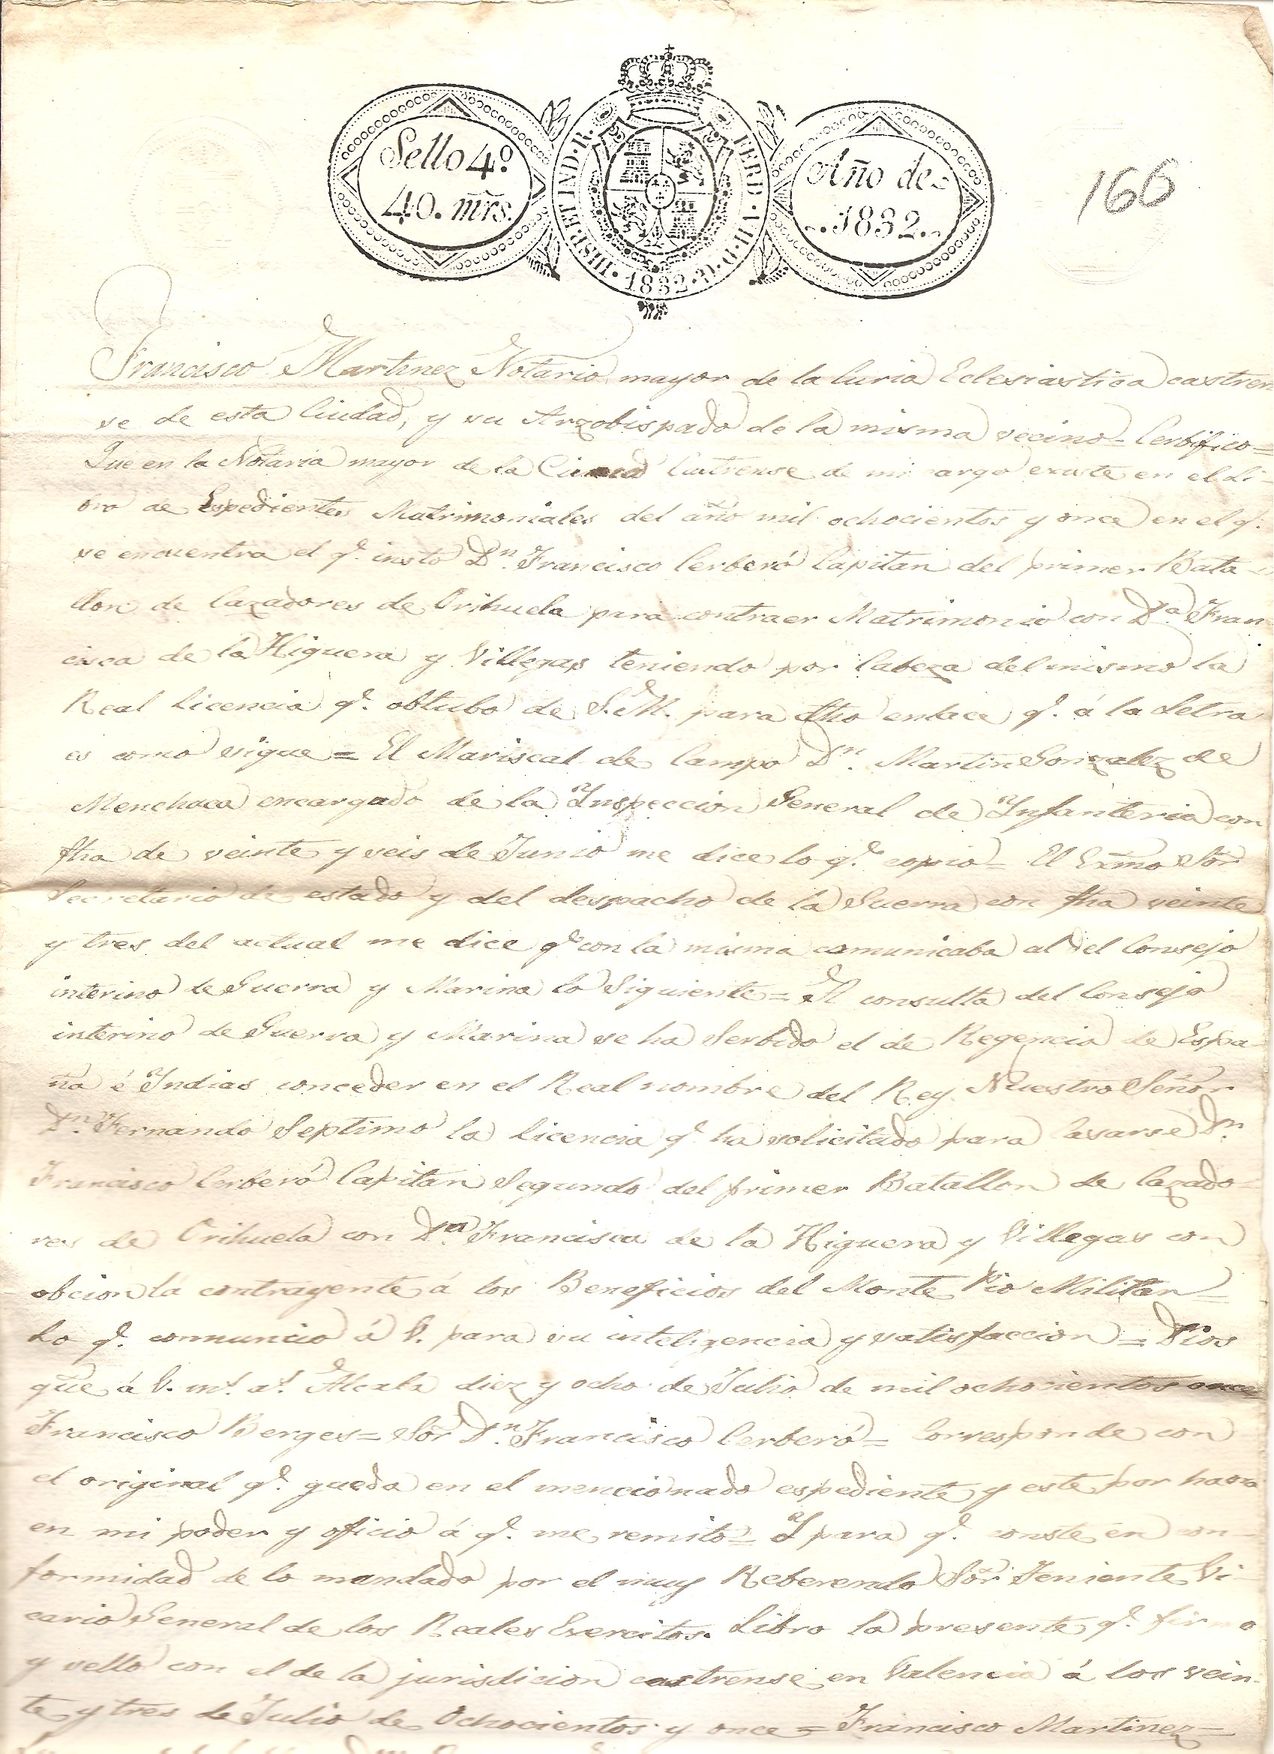 Sello 4º
40. mrs.
HISP. ET IND. R. FERD. VII. D. G. 1832
Año de
1832.
166
Francisco Martinez Notario mayor de la Curia Eclesiastica castren
se de esta Ciudad, y su Arzobispado de la misma vecino = Certifico =
Que en la Notaria mayor de la Castrense de mi cargo existe en el Li-
bro de Espedientes Matrimoniales del año mil ochocientos y once en el q.
se encuentra el q. insto Dn. Francisco Cerberó Capitan del primer Bata-
llon de Cazadores de Orihuela para contraer Matrimonio con Da. Fran
cisca de la Higuera y Villegas teniendo por Cabeza del mismo la
Real Licencia q. obtubo de S.M. para dho enlace q. á la Letra
es como sigue = El Mariscal de Campo Dn. Martin Gonzalez de
Menchaca encargado de la Inspeccion General de Infanteria con
fha de veinte y seis de Junio me dice lo q. copio = El Exmo Sör
Secretario de estado y del despacho de la Guerra con fha veinte
y tres del actual me dice q. con la misma comunicaba al del Consejo
interino de Guerra y Marina lo Siguiente = A consulta del Consejo
interino de Guerra y Marina se ha Serbido el de Regencia de Espa-
ña é Indias conceder en el Real nombre del Rey Nuestro Señor
Dn. Fernando Septimo la licencia q. ha solicitado para Casarse Dn.
Francisco Cerberó Capitan Segundo del primer Batallon de Cazado-
res de Orihuela con Da. Francisca de la Higuera y Villegas con
obcion la contrayente á los Beneficios del Monte Pio Militar =
Lo q. comnuncio á V. para su inteligencia y satisfaccion = Dios
gue á V. ms. as. Alcala diez y ocho de Julio de mil ochocientos once
Francisco Berges = Sör Dn. Francisco Cerberó = Corresponde con
el original q. queda en el mencionado espediente y este por haora
en mi poder y oficio á q. me remito = Y para q. conste en con-
formidad de lo mandado por el muy Reberendo Sör Teniente Vi-
cario General de los Reales Exercitos. Libro la presente q. firmo
y sello con el de la jurisdicion castrense en Valencia á los vein-
te y tres de Julio de Ochocientos y once = Francisco Martinez =